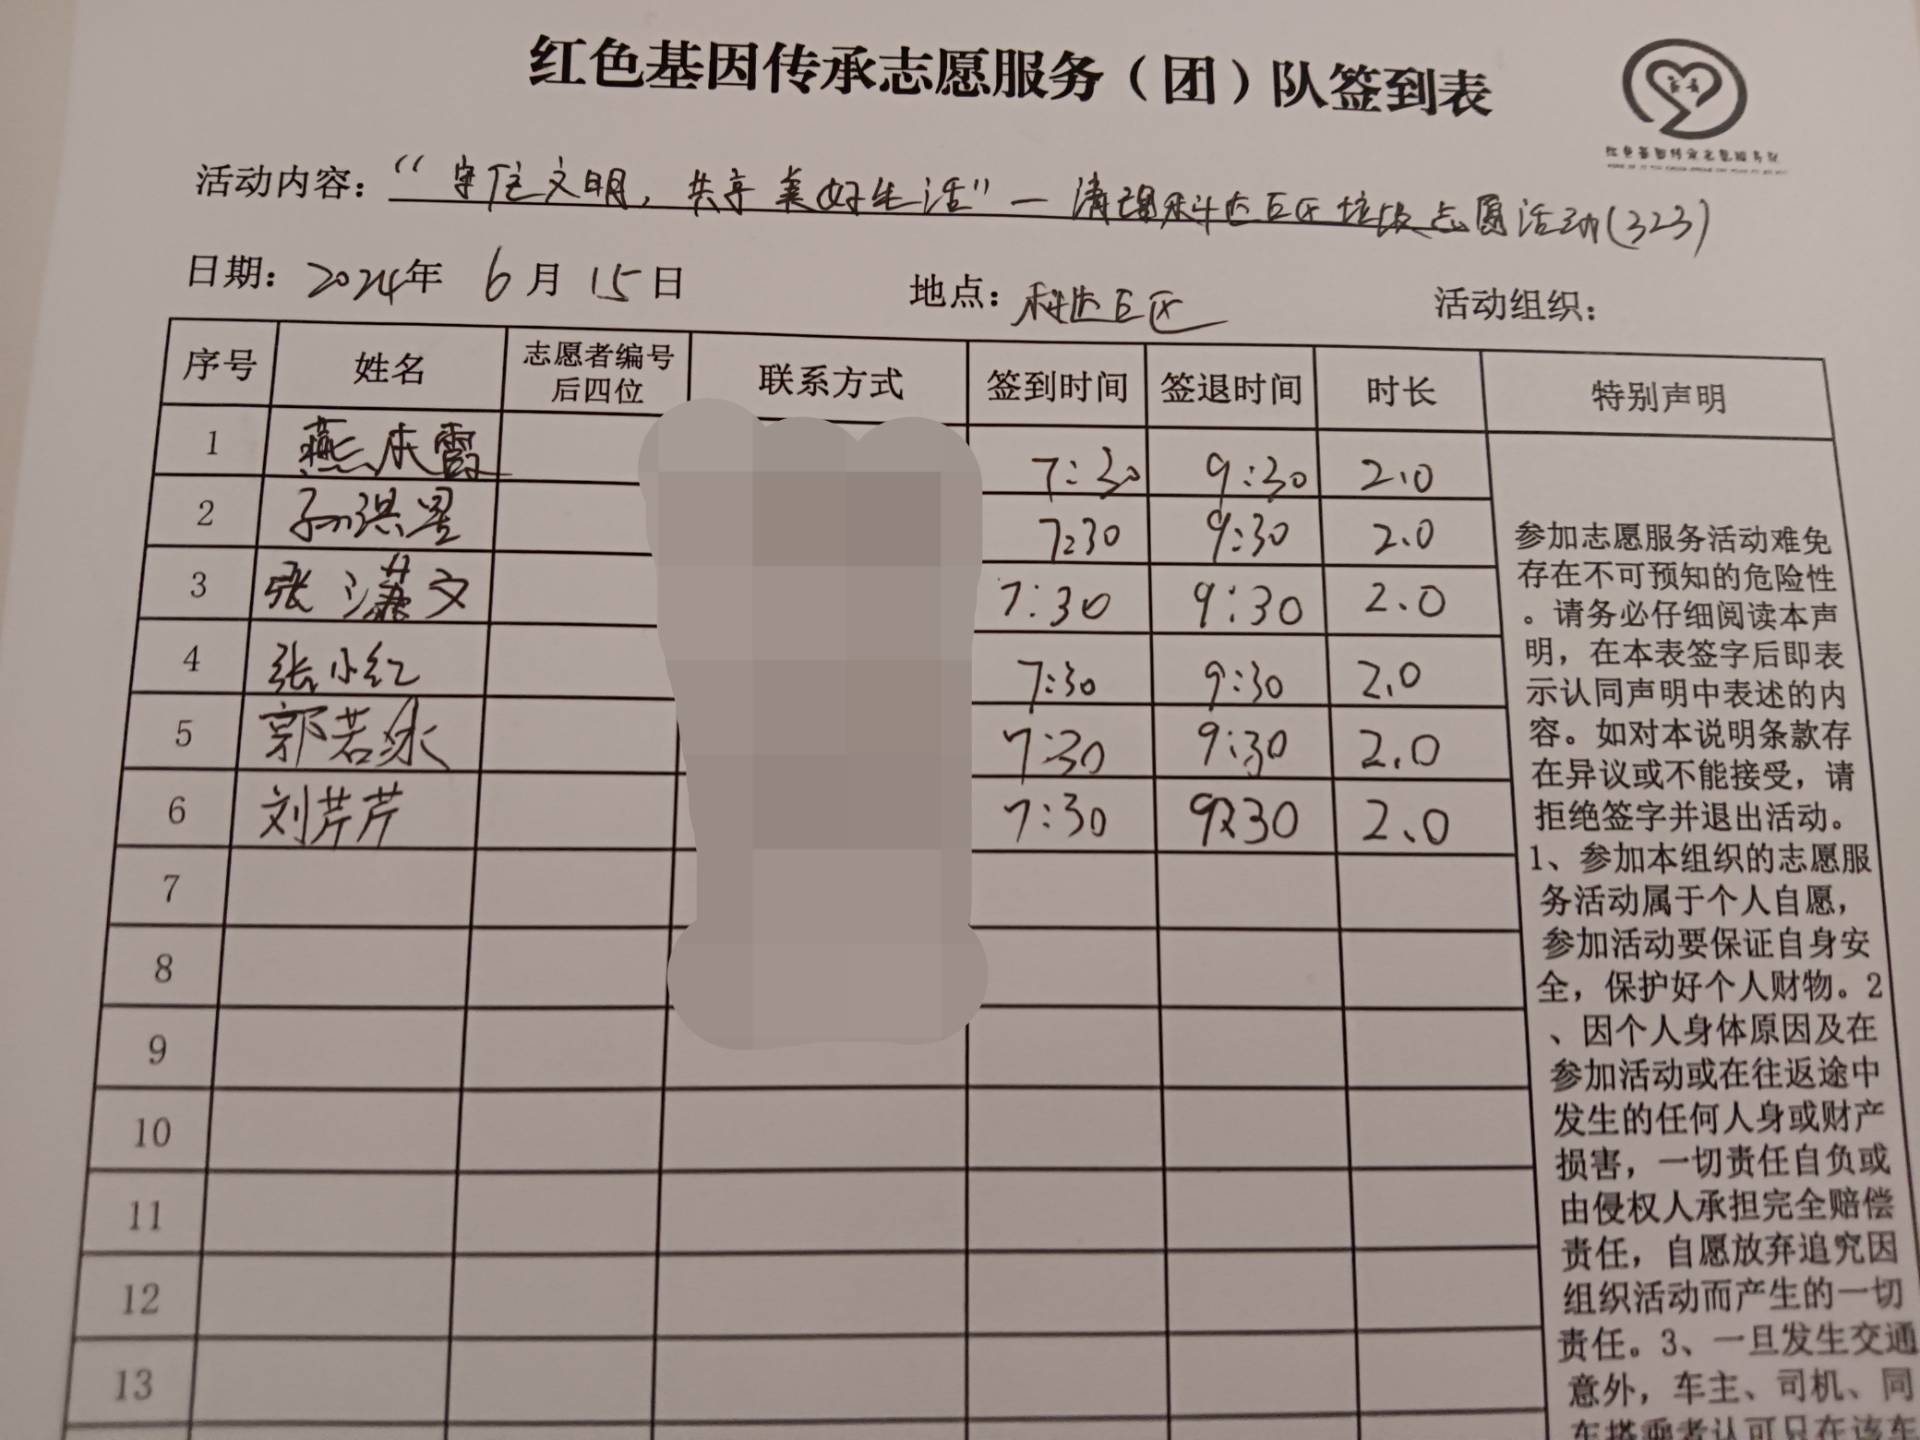 红色基因传承志愿服务（团）队签到表
红色基因传承志愿服务队
活动内容：“守住文明，共享美好生活”—清理科达巨区垃圾志愿活动(323)
日期：2024年 6月 15日 地点：科达巨区 活动组织：
序号 姓名 志愿者编号后四位 联系方式 签到时间 签退时间 时长 特别声明
1 燕木霞 7:30 9:30 2.0
2 孙洪星 7:30 9:30 2.0
3 张 文 7:30 9:30 2.0
4 张小红 7:30 9:30 2.0
5 郭若冰 7:30 9:30 2.0
6 刘芹芹 7:30 9:30 2.0
7
8
9
10
11
12
13
参加志愿服务活动难免
存在不可预知的危险性
。请务必仔细阅读本声
明，在本表签字后即表
示认同声明中表述的内
容。如对本说明条款存
在异议或不能接受，请
拒绝签字并退出活动。
1、参加本组织的志愿服
务活动属于个人自愿，
参加活动要保证自身安
全，保护好个人财物。2
、因个人身体原因及在
参加活动或在往返途中
发生的任何人身或财产
损害，一切责任自负或
由侵权人承担完全赔偿
责任，自愿放弃追究因
组织活动而产生的一切
责任。3、一旦发生交通
意外，车主、司机、同
车搭乘者认可只在该车